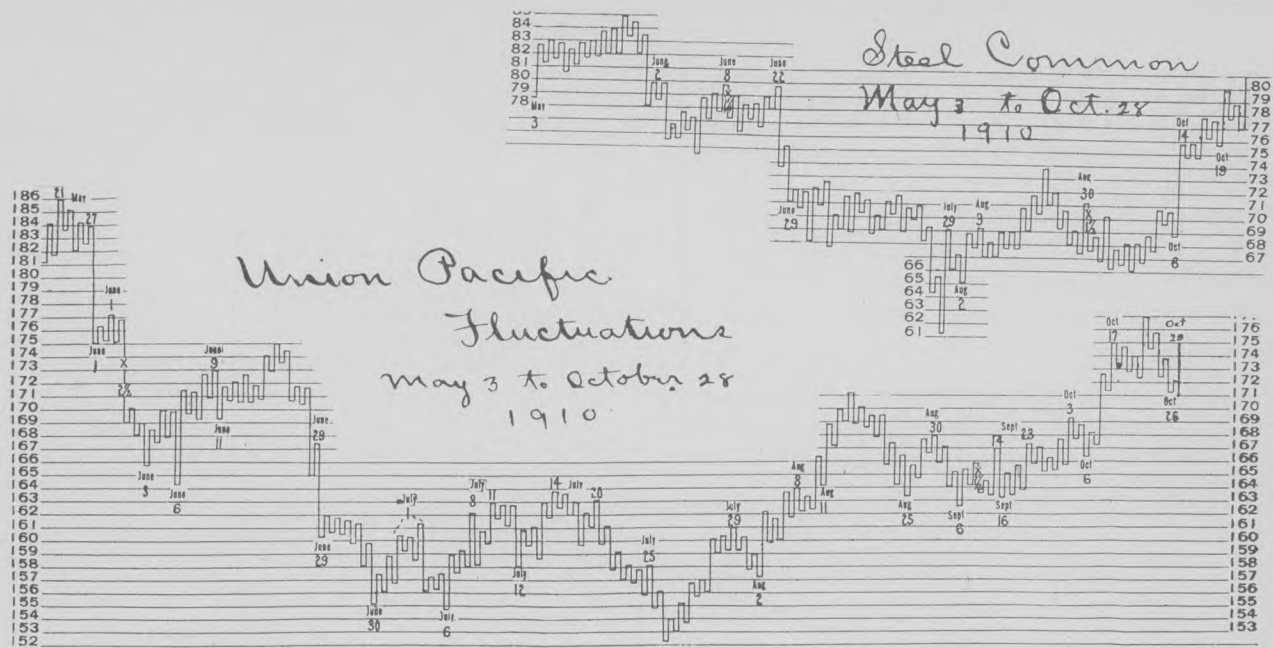 Steel Common
May 3 to Oct. 28
1910
84
83
82
81
80
79
78
May
3
June
2
June
8
June
22
June
29
July
29
Aug
9
Aug
2
Aug
30
Oct
6
Oct
14
Oct
19
80
79
78
77
76
75
74
73
72
71
70
69
68
67
66
65
64
63
62
61
Union Pacific
Fluctuations
May 3 to October 28
1910
186
185
184
183
182
181
180
179
178
177
176
175
174
173
172
171
170
169
168
167
166
165
164
163
162
161
160
159
158
157
156
155
154
153
152
21 May
27
June
1
June
1
X
2½
June
3
June
6
June
9
June
11
June
29
June
29
June
30
July
1
July
6
July
8
11
July
12
14 July
20
July
25
July
29
Aug
2
Aug
8
Aug
11
Aug
25
Aug
30
Sept
6
14
Sept
16
Sept
23
Oct
3
Oct
6
Oct
17
Oct
Oct
26
176
175
174
173
172
171
170
169
168
167
166
165
164
163
162
161
160
159
158
157
156
155
154
153